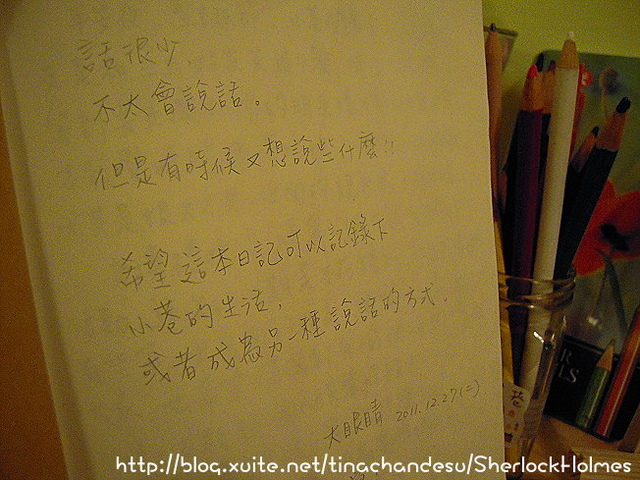 話很少,
不太會說話。
但是有時候又想說些什麼!!
希望這本日記可以記錄下
小巷的生活,
或者成為另一種說話的方式.
大眼睛 2011.12.27(二)
http://blog.xuite.net/tinachandesu/SherlockHolmes